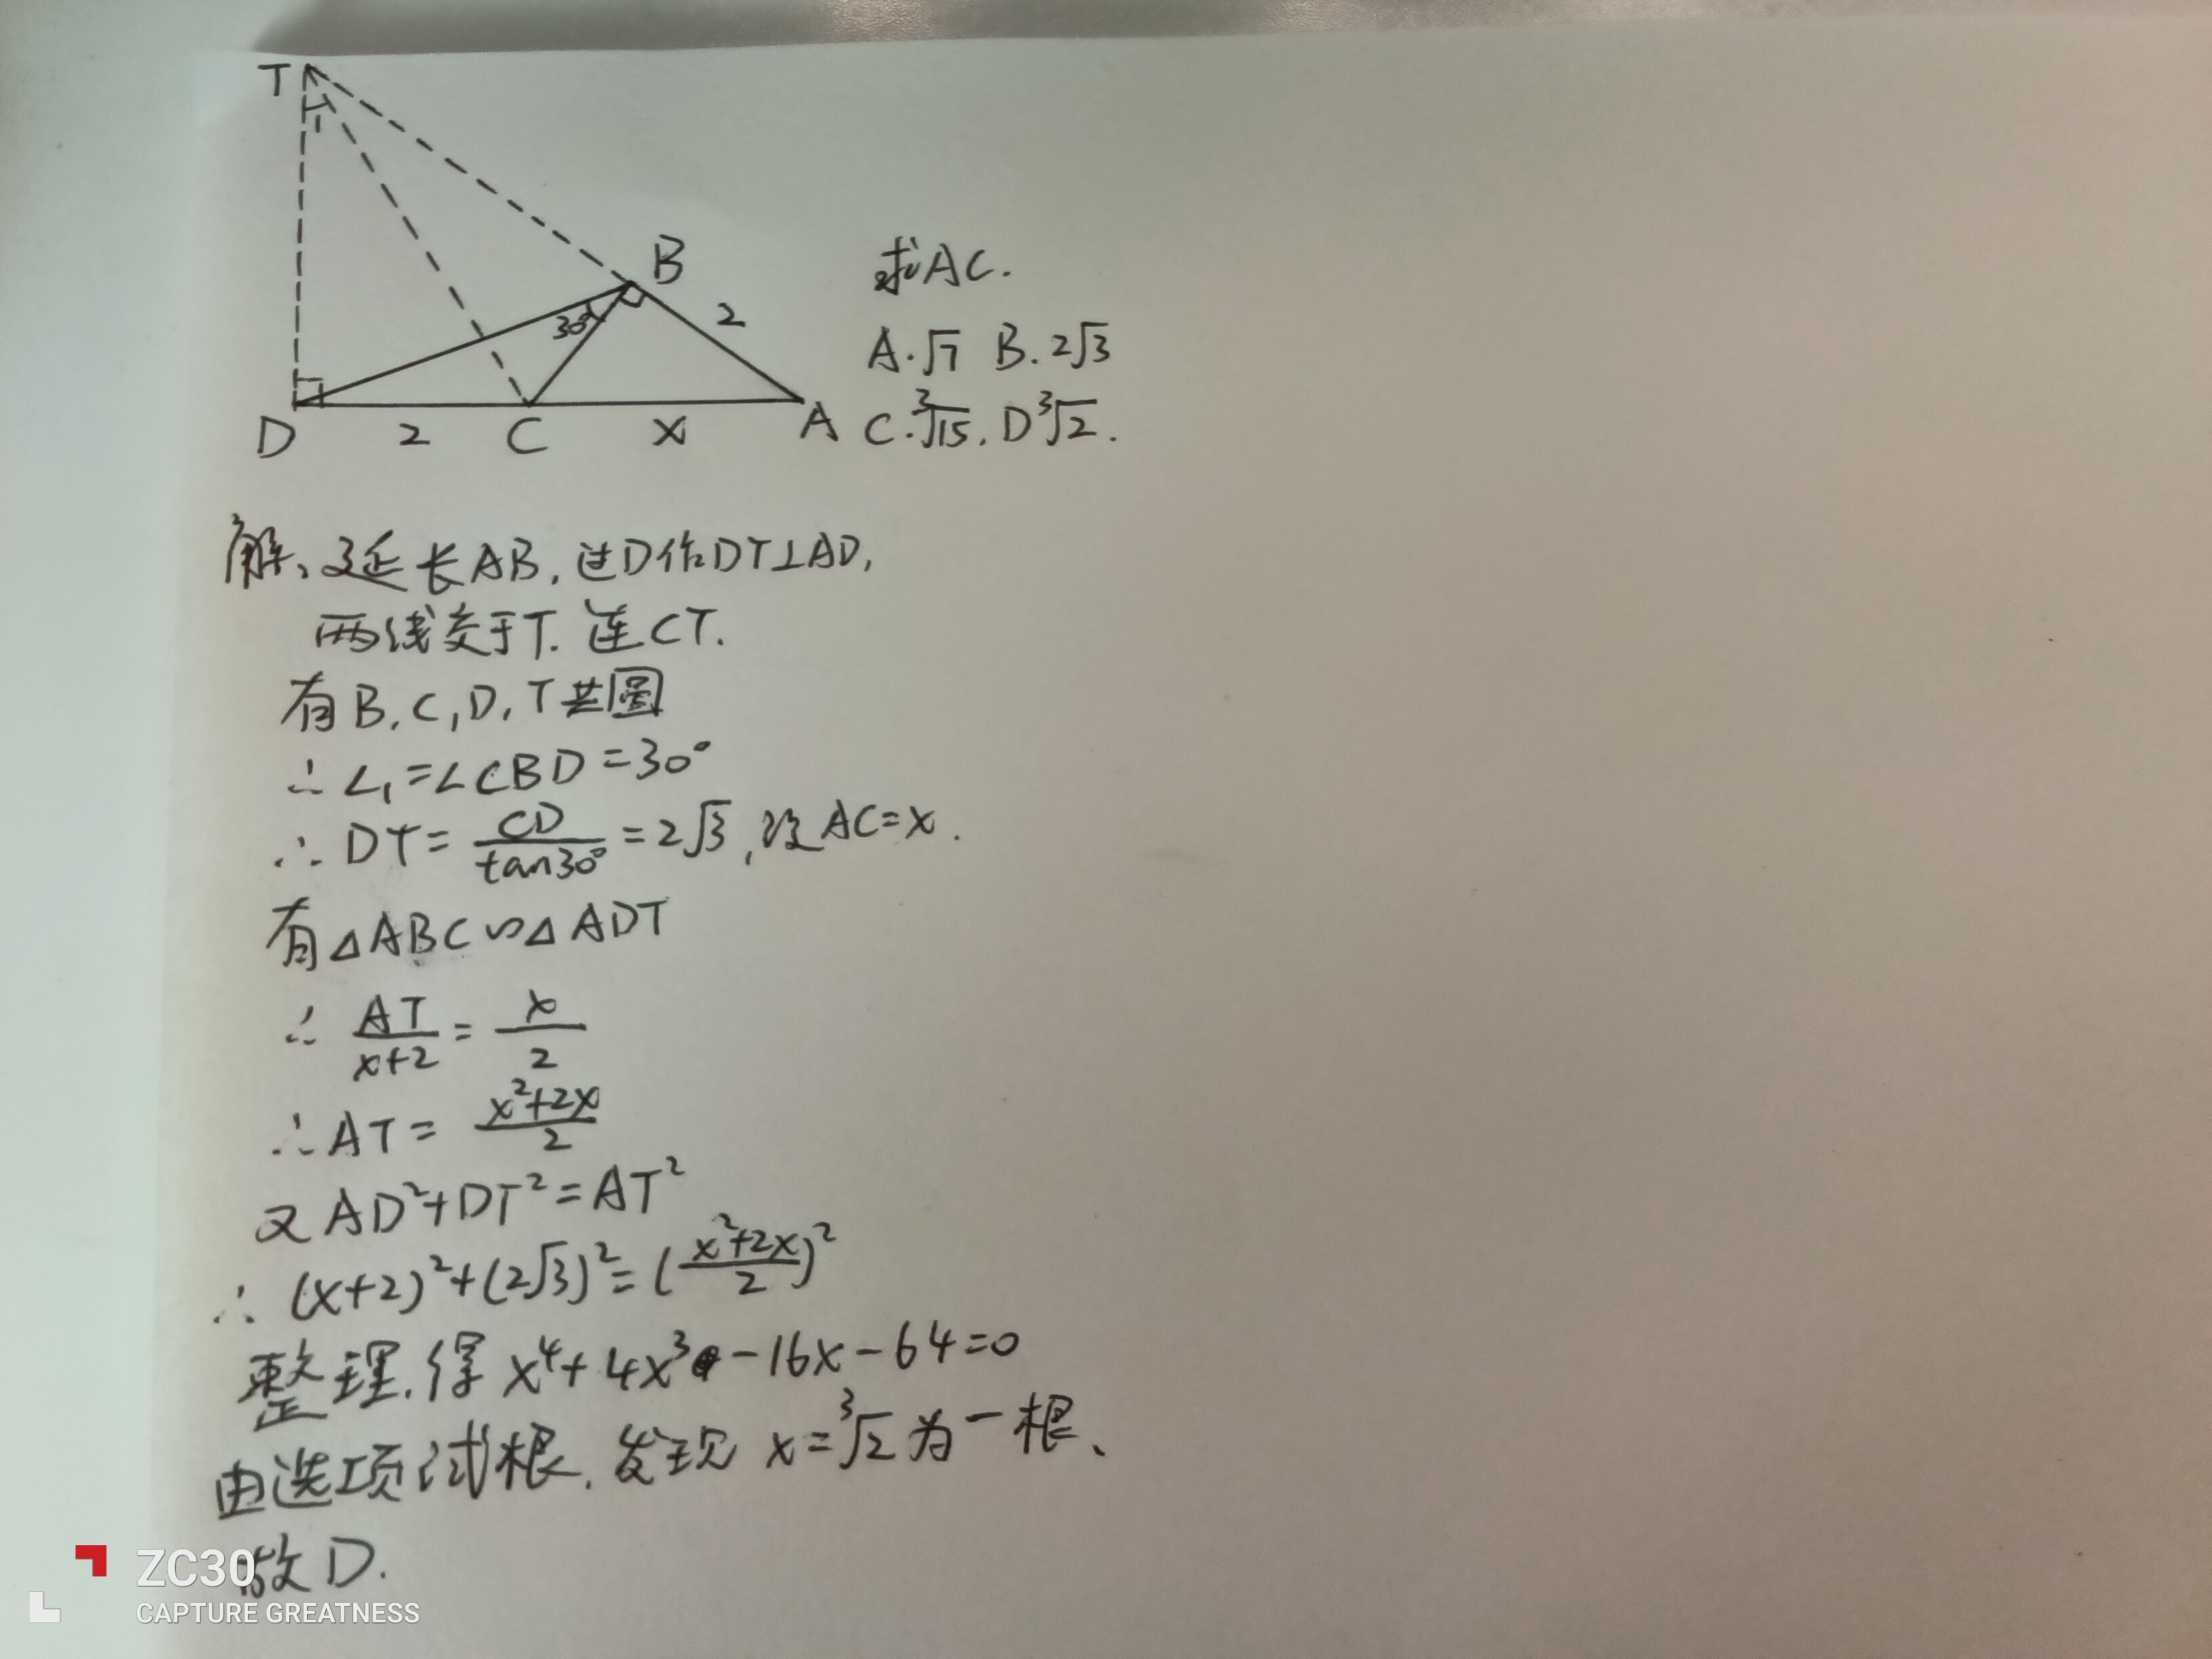 T
1
B
30°
2
D
2
C
x
A
求AC.
A.√7 B.2√3
C.³√15. D ³√2.
解、延长AB,过D作DT⊥AD,
两线交于T.连CT.
有B,C,D,T共圆
∴∠1=∠CBD=30°
∴DT=CD/tan30°=2√3,设AC=x.
有△ABC∽△ADT
∴AT/(x+2)=x/2
∴AT=(x²+2x)/2
又AD²+DT²=AT²
∴(x+2)²+(2√3)²=((x²+2x)/2)²
整理,得x⁴+4x³-16x-64=0
由选项试根,发现x=³√2为一根、
故D.
ZC30
CAPTURE GREATNESS